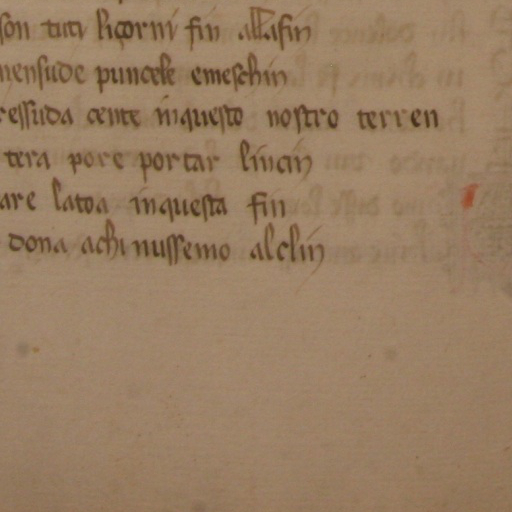 son tuti licorni fin allasin
mensude puncele emeschin
ressuda cente inquesto nostro terren
tera pore portar lincin
are latoa inquesta fin
dona achi nussemo alclin